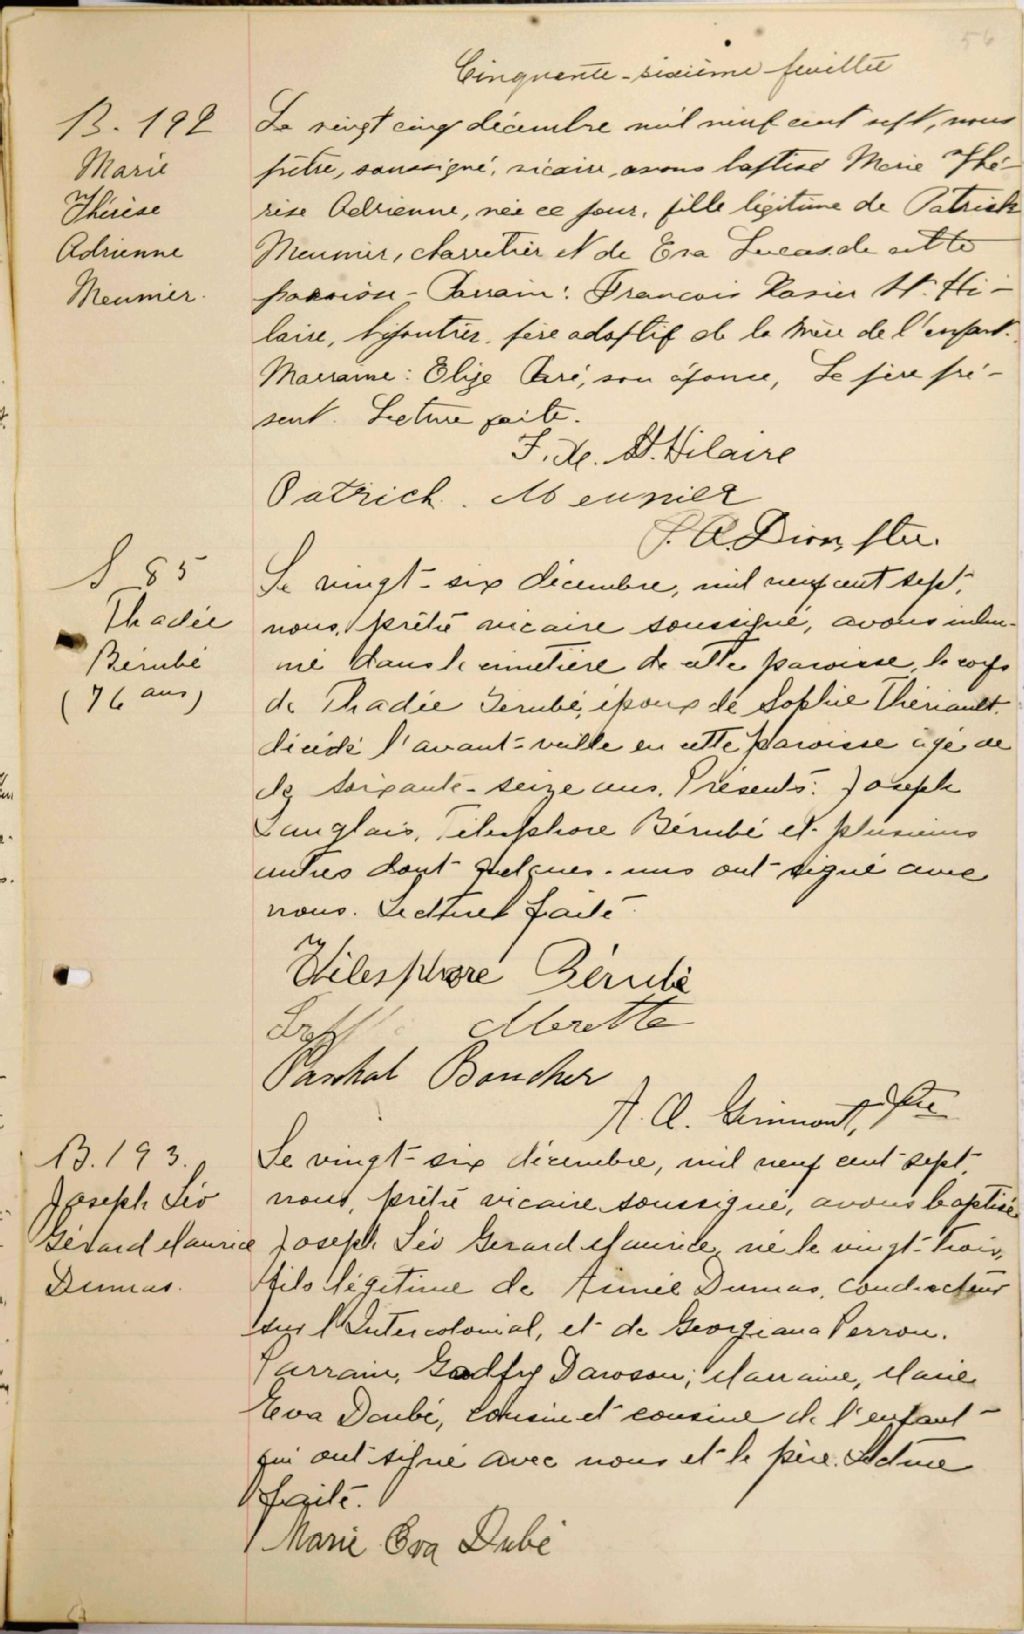 56
Cinquante-sixième feuillet
B. 192
Marie
Thérèse
Adrienne
Meunier.
Le vingt cinq décembre mil neuf cent sept, nous
prêtre, soussigné, vicaire, avons baptisé Marie Thé-
rèse Adrienne, née ce jour, fille légitime de Patrick
Meunier, charretier et de Eva Lucas de cette
paroisse - Parrain: Francois Xavier St. Hi-
laire, bijoutier, père adoptif de la mère de l'enfant.
Marraine: Elize Paré, son épouse, Le père pré-
sent. Lecture faite.
F. X. St. Hilaire
Patrick. Meunier
P. A. Dion, ptre.
S 85
Thadée
Bérubé
(76 ans)
Le vingt-six décembre, mil neuf cent sept,
nous, prêtre vicaire soussigné, avons inhu-
mé dans le cimetière de cette paroisse, le corps
de Thadée Bérubé, époux de Sophie Thériault,
décédé l'avant-veille en cette paroisse âgé de
de soixante-seize ans. Présents: Joseph
Langlais, Télesphore Bérubé et plusieurs
autres dont quelques-uns ont signé avec
nous. Lecture faite.
Télesphore Bérubé
Merette
Paschal Boucher
A. A. Guimont, Ptre
B. 193.
Joseph Léo
Gérard Maurice
Dumas.
Le vingt-six décembre, mil neuf cent sept,
nous, prêtre vicaire soussigné, avons baptisé
Joseph Léo Gerard Maurice, né le vingt-trois,
fils légitime de Aimée Dumas, conducteur
sur l'Intercolonial, et de Georgiana Perron.
Parrain, Godfry Dawson; Marraine, Marie
Eva Doubé, cousin et cousine de l'enfant
qui ont signé avec nous et le père. Lecture
faite.
Marie Eva Dubé